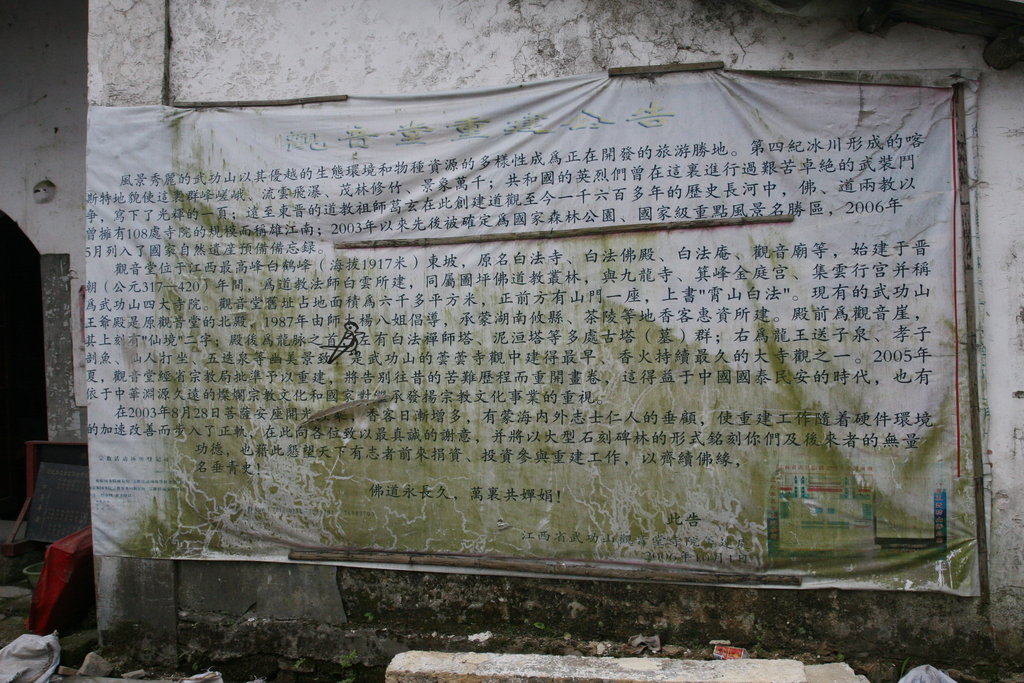 觀音堂重建公告
風景秀麗的武功山以其優越的生態環境和物種資源的多樣性成爲正在開發的旅游勝地。第四紀冰川形成的喀
斯特地貌使這裏群峰嵯峨、流雲飛瀑、茂林修竹、景象萬千；共和國的英烈們曾在這裏進行過艱苦卓絶的武裝鬥
争，寫下了光輝的一頁；遠至東晋的道教祖師葛玄在此創建道觀至今一千六百多年的歷史長河中，佛、道兩教以
曾擁有108處寺院的規模而稱雄江南；2003年以來先後被確定爲國家森林公園、國家級重點風景名勝區，2006年
5月列入了國家自然遺産預備備忘録。
觀音堂位于江西最高峰白鶴峰（海拔1917米）東坡，原名白法寺、白法佛殿、白法庵、觀音廟等，始建于晋
朝（公元317—420）年間，爲道教法師白雲所建，同屬圖坪佛道教叢林，與九龍寺、箕峰金庭宫、集雲行宫并稱
爲武功山四大寺院。觀音堂舊址占地面積爲六千多平方米，正前方有山門一座，上書"霄山白法"。現有的武功山
王爺殿是原觀音堂的北殿，1987年由師太楊八姐倡導，承蒙湖南攸縣、茶陵等地香客惠資所建。殿前爲觀音崖，
其上刻有"仙境"二字；殿後爲龍脉之首；左有白法禪師塔、泥洹塔等多處古塔（墓）群；右爲龍王送子泉、孝子
剖魚、仙人打坐、五迭泉等幽美景致，是武功山的蕓蕓寺觀中建得最早、香火持續最久的大寺觀之一。2005年
夏，觀音堂經省宗教局批準予以重建，將告别往昔的苦難歷程而重開畫卷，這得益于中國國泰民安的時代，也有
依于中華淵源久遠的燦爛宗教文化和國家對承發揚宗教文化事業的重視。
在2003年8月28日菩薩安座開光，香客日漸增多，有蒙海内外志士仁人的垂顧，使重建工作隨着硬件環境
的加速改善而步入了正軌，在此向各位致以最真誠的謝意，并將以大型石刻碑林的形式銘刻你們及後來者的無量
功德，也藉此懇望天下有志者前來捐資、投資參與重建工作，以齊續佛緣，
名垂青史！
佛道永長久，萬裏共嬋娟！
此告
江西省武功山觀音堂寺院